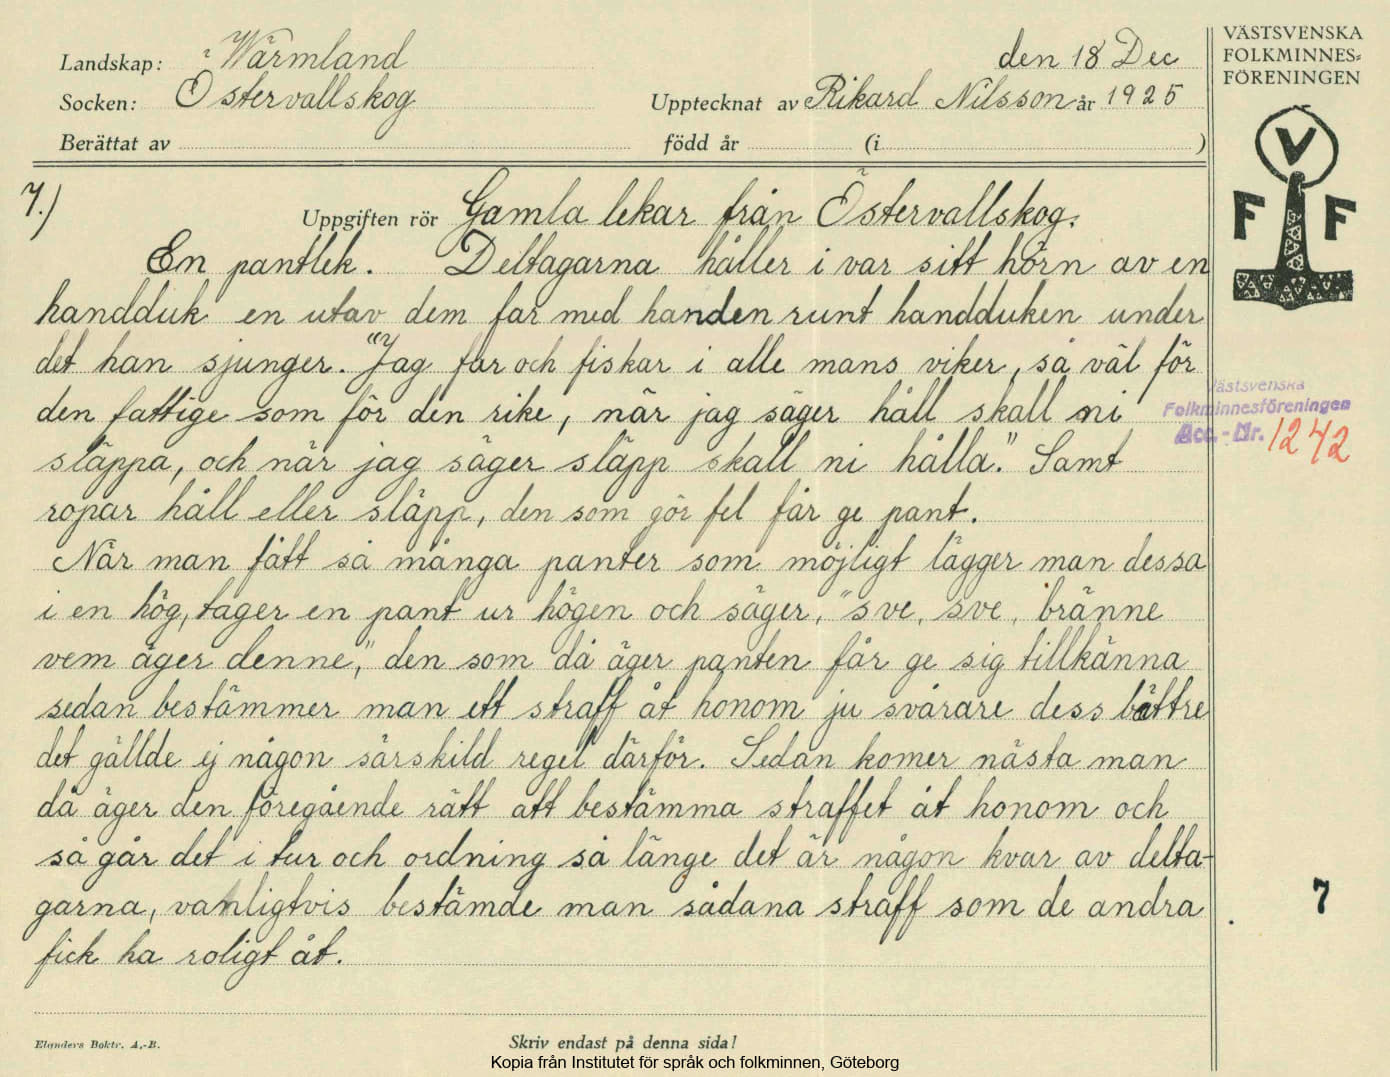 Landskap: Wärmland den 18 Dec
Socken: Östervallskog Upptecknat av Rikard Nilsson år 1925
Berättat av född år (i )
VÄSTSVENSKA
FOLKMINNES-
FÖRENINGEN
V
F F
7.)
Uppgiften rör Gamla lekar från Östervallskog.
En pantlek. Deltagarna håller i var sitt hörn av en
handduk en utav dem far med handen runt handduken under
det han sjunger. "Jag far och fiskar i alle mans viker, så väl för
den fattige som för den rike, når jag säger håll skall ni
släppa, och när jag säger släpp skall ni hålla." Samt
ropar håll eller släpp, den som gör fel får ge pant.
När man fått så många panter som möjligt lägger man dessa
i en hög, tager en pant ur högen och säger, "sve, sve, bränne
vem äger denne," den som då äger panten får ge sig tillkänna
sedan bestämmer man ett straff åt honom ju svårare dess bättre
det gällde ej någon särskild regel därför. Sedan komer nästa man
då äger den föregående rätt att bestämma straffet åt honom och
så går det i tur och ordning så länge det är någon kvar av delta-
garna, vanligtvis bestämde man sådana straff som de andra
fick ha roligt åt.
Västsvenska
Folkminnesföreningen
Acc.-Nr. 1242
7
Elanders Boktr. A.-B.
Skriv endast på denna sida!
Kopia från Institutet för språk och folkminnen, Göteborg